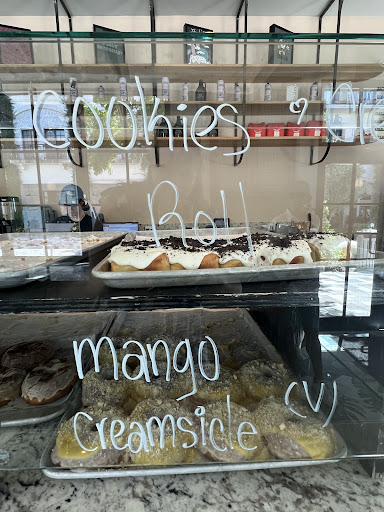 cookies
Roll
mango
creamsicle (v)